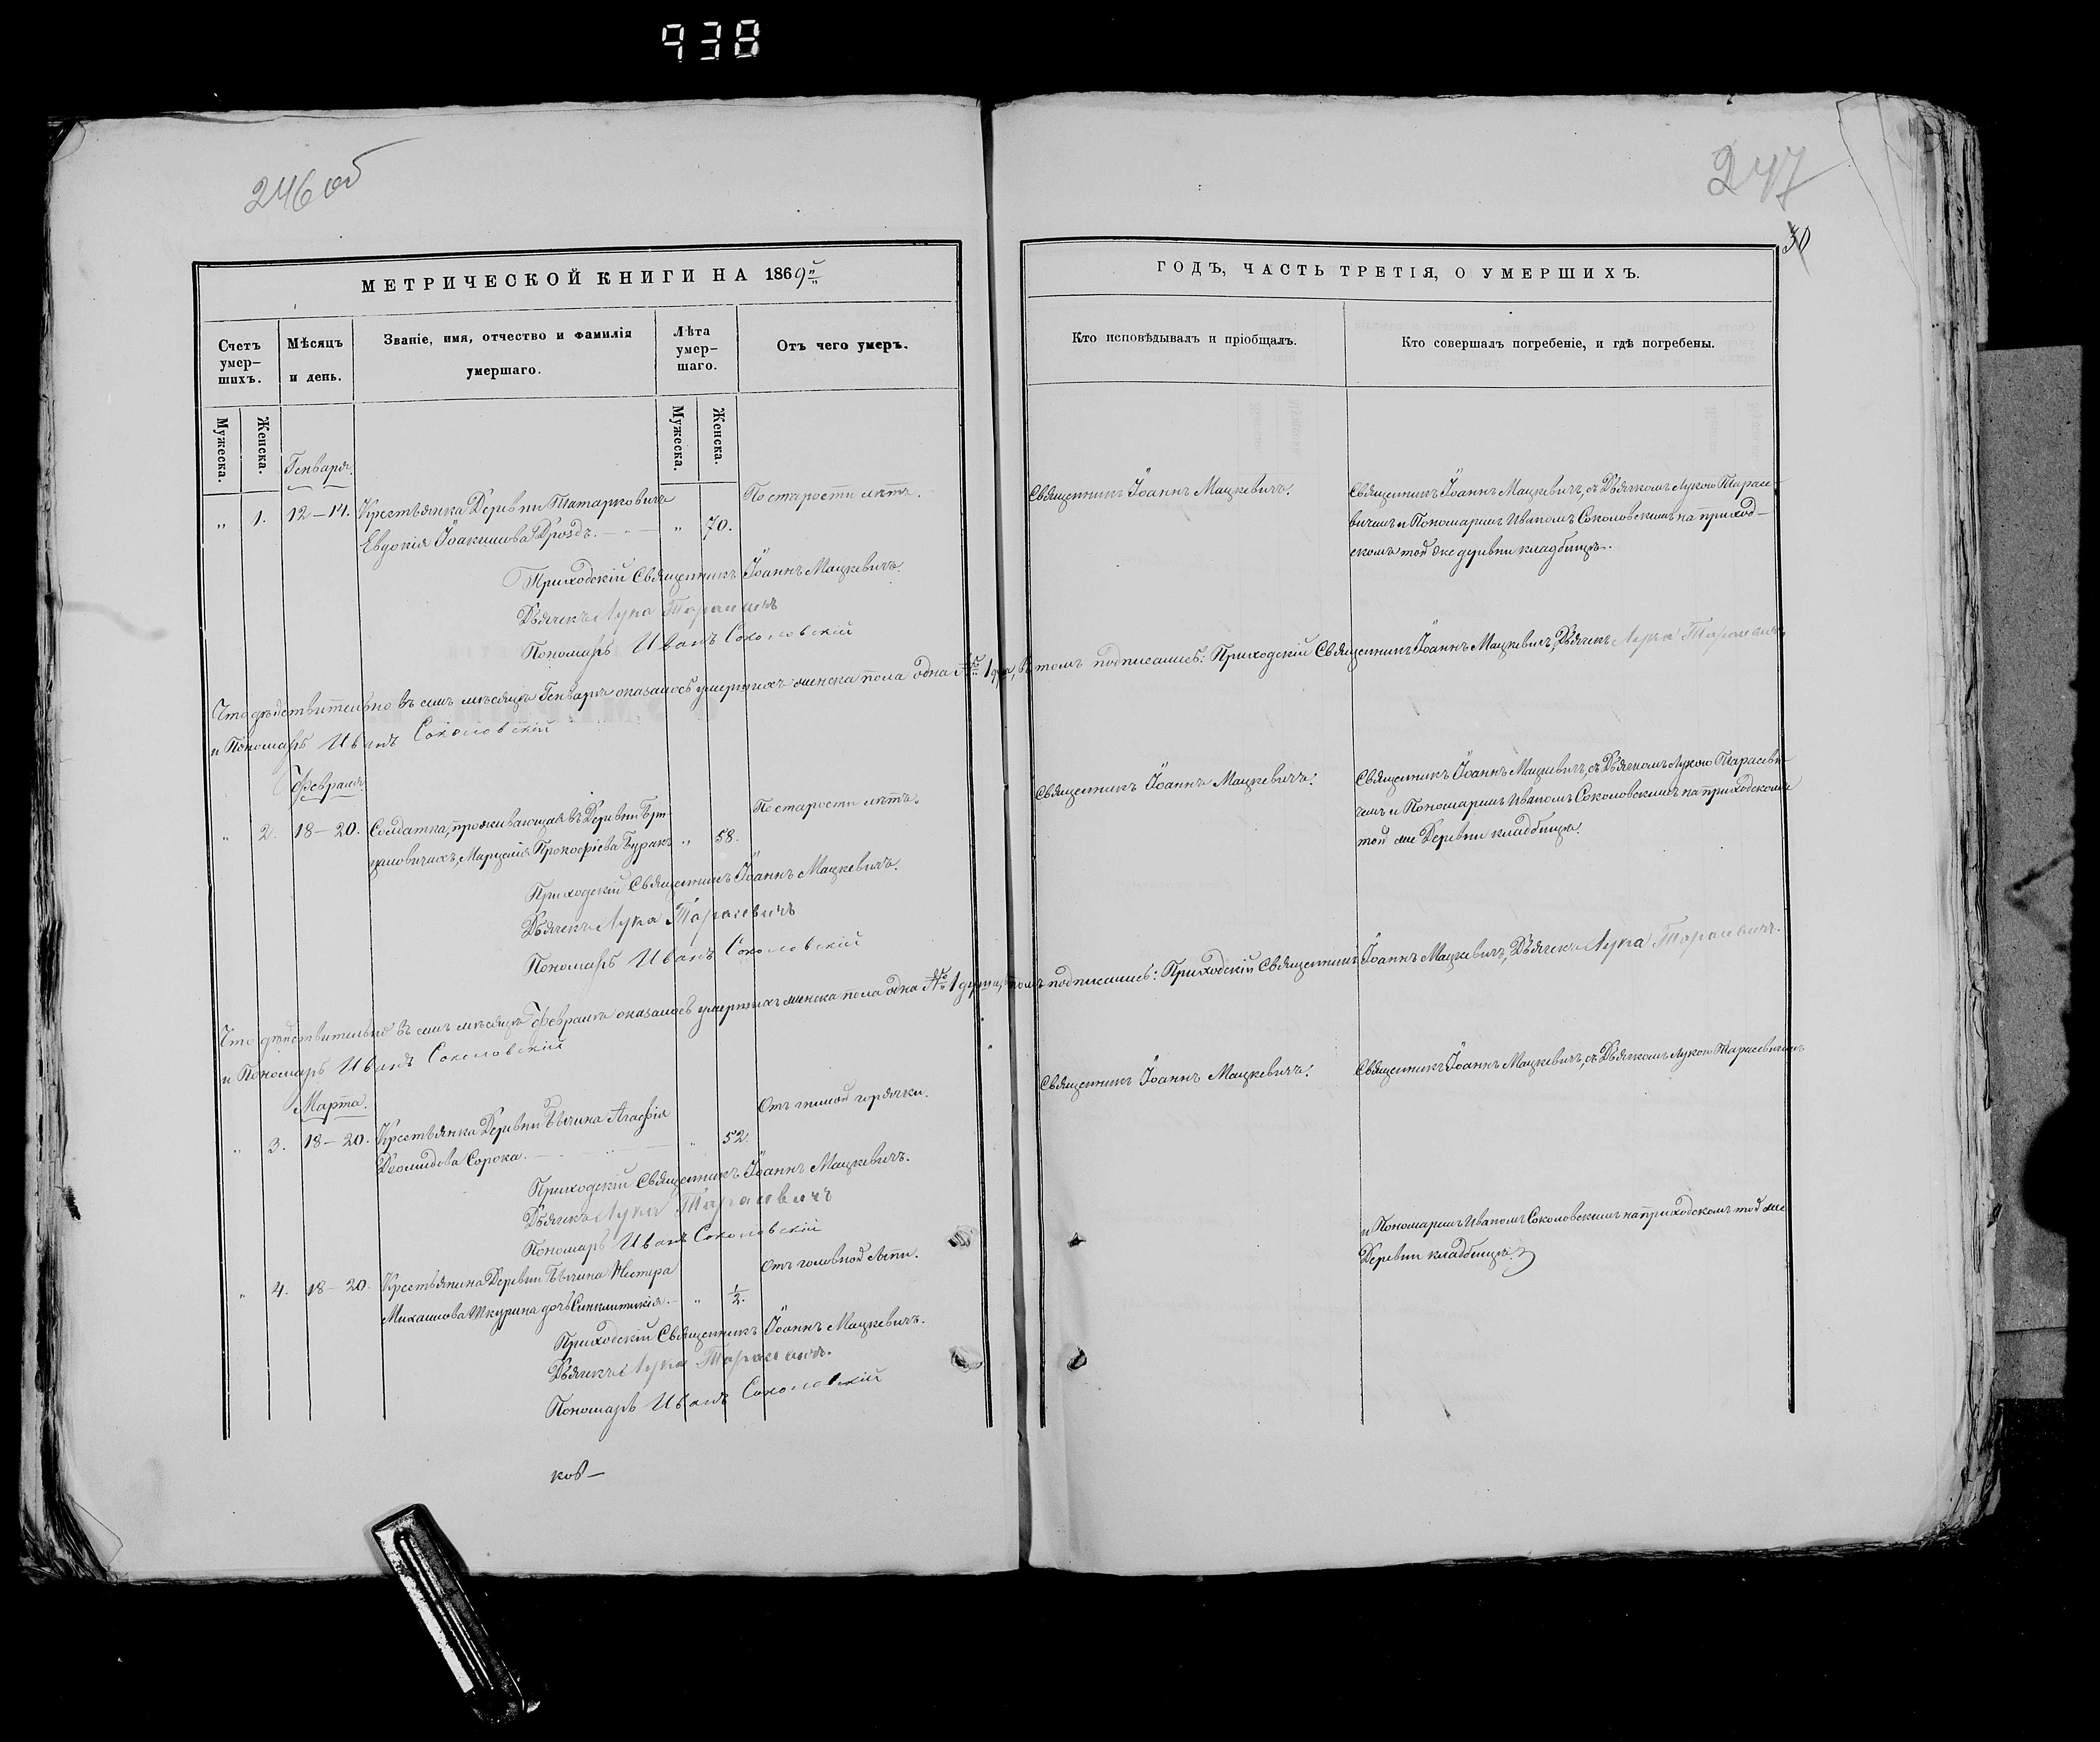 938
246 об
247
30
МЕТРИЧЕСКОЙ КНИГИ НА 1869й
Счетъ умер-
шихъ.
Мѣсяцъ
и день.
Званіе, имя, отчество и фамилія
умершаго.
Лѣта
умер-
шаго.
Отъ чего умеръ.
Мужеска.
Женска.
Мужеска.
Женска.
Генваря.
„ 1. 12–14. Крестьянка Деревни Татарковичъ
Евдокія Іоакимова Дроздъ. „ 70. По старости лѣтъ.
Приходскій Священникъ Іоаннъ Мацкевичъ.
Дьячекъ Лука Тарасевичъ
Пономарь Иванъ Соколовскій
Что дѣйствительно въ семъ мѣсяцѣ Генварѣ оказалось умершихъ женска пола одна № 1 душа, въ томъ подписались: Приходскій Священникъ Іоаннъ Мацкевичъ, Дьячекъ Лука Тарасевичъ
и Пономарь Иванъ Соколовскій
Февраля
„ 2. 18–20. Солдатка, проживающая въ Деревни
Прокофіева Буракъ „ 58. По старости лѣтъ.
Приходскій Священникъ Іоаннъ Мацкевичъ.
Дьячекъ Лука Тарасевичъ
Пономарь Иванъ Соколовскій
Что дѣйствительно въ семъ мѣсяцѣ Февралѣ оказалось умершихъ женска пола одна № 1 душа, въ томъ подписались: Приходскій Священникъ Іоаннъ Мацкевичъ, Дьячекъ Лука Тарасевичъ.
и Пономарь Иванъ Соколовскій
Марта.
„ 3. 18–20. Крестьянка Деревни Агафія
Діомидова Сорока. „ 52. Отъ горячки.
Приходскій Священникъ Іоаннъ Мацкевичъ.
Дьячекъ Лука Тарасевичъ
Пономарь Иванъ Соколовскій
„ 4. 18–20. Крестьянина Деревни Нестера
Михайлова Шкурина дочь Синклитикія. „ 1/2. Отъ головной
Приходскій Священникъ Іоаннъ Мацкевичъ.
Дьячекъ Лука Тарасевичъ.
Пономарь Иванъ Соколовскій
ков–
ГОДЪ, ЧАСТЬ ТРЕТІЯ, О УМЕРШИХЪ.
Кто исповѣдывалъ и пріобщалъ.
Кто совершалъ погребеніе, и гдѣ погребены.
Священникъ Іоаннъ Мацкевичъ.
Священникъ Іоаннъ Мацкевичъ, съ Дьячкомъ Лукою Тарасе-
вичемъ и Пономаремъ Иваномъ Соколовскимъ на приход-
скомъ той же деревни кладбищѣ.
Священникъ Іоаннъ Мацкевичъ.
Священникъ Іоаннъ Мацкевичъ, съ Дьячкомъ Лукою Тарасеви-
чемъ и Пономаремъ Иваномъ Соколовскимъ на приходскомъ
той же Деревни кладбищѣ.
Священникъ Іоаннъ Мацкевичъ.
Священникъ Іоаннъ Мацкевичъ, съ Дьячкомъ Лукою Тарасевичемъ
и Пономаремъ Иваномъ Соколовскимъ на приходскомъ той же
Деревни кладбищѣ.